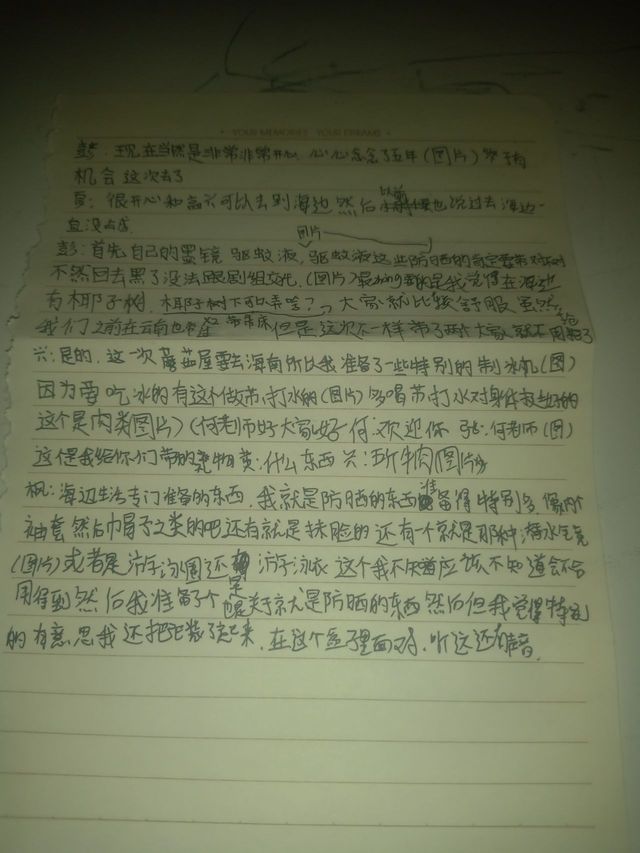 YOUR MEMORIES YOUR DREAMS
彭：现在当然是非常非常开心，心心念念了五年（图片）终于有
机会这次去了
黄：很开心和高兴可以去到海边然后以前也说过去海边一
直没去成
图片
彭：首先自己的墨镜，驱蚊液，驱蚊液这些防晒的肯定要带对不对
不然回去黑了没法跟剧组交代，（图片）最重要的是我觉得在海边
有椰子树，椰子树下可以弄啥？大家就比较舒服虽然
我们之前在云南也带吊床但是这次不一样带了两个大家就不用
兴：是的，这一次蘑菇屋要去海南所以我准备了一些特别的制冰机（图）
因为要吃冰的有这个做苏打水的（图片）多喝苏打水对身体挺好的
这个是肉类（图片）（何老师好大家好 何：欢迎你 张：何老师（图）
这是我给你们带的礼物 黄：什么东西 兴：五斤牛肉（图片）
枫：海边生活专门准备的东西，我就是防晒的东西准备得特别多，像
袖套然后巾帽子之类的吧还有就是抹脸的还有一个就是那种潜水气
（图片）或者是游泳圈还有游泳衣这个我不知道应该不知道会不会
用得到然后我准备了个是关于就是防晒的东西然后但我觉得特别
的有意思我还把它装了起来，在这个盒子里面对，听这还有声音，